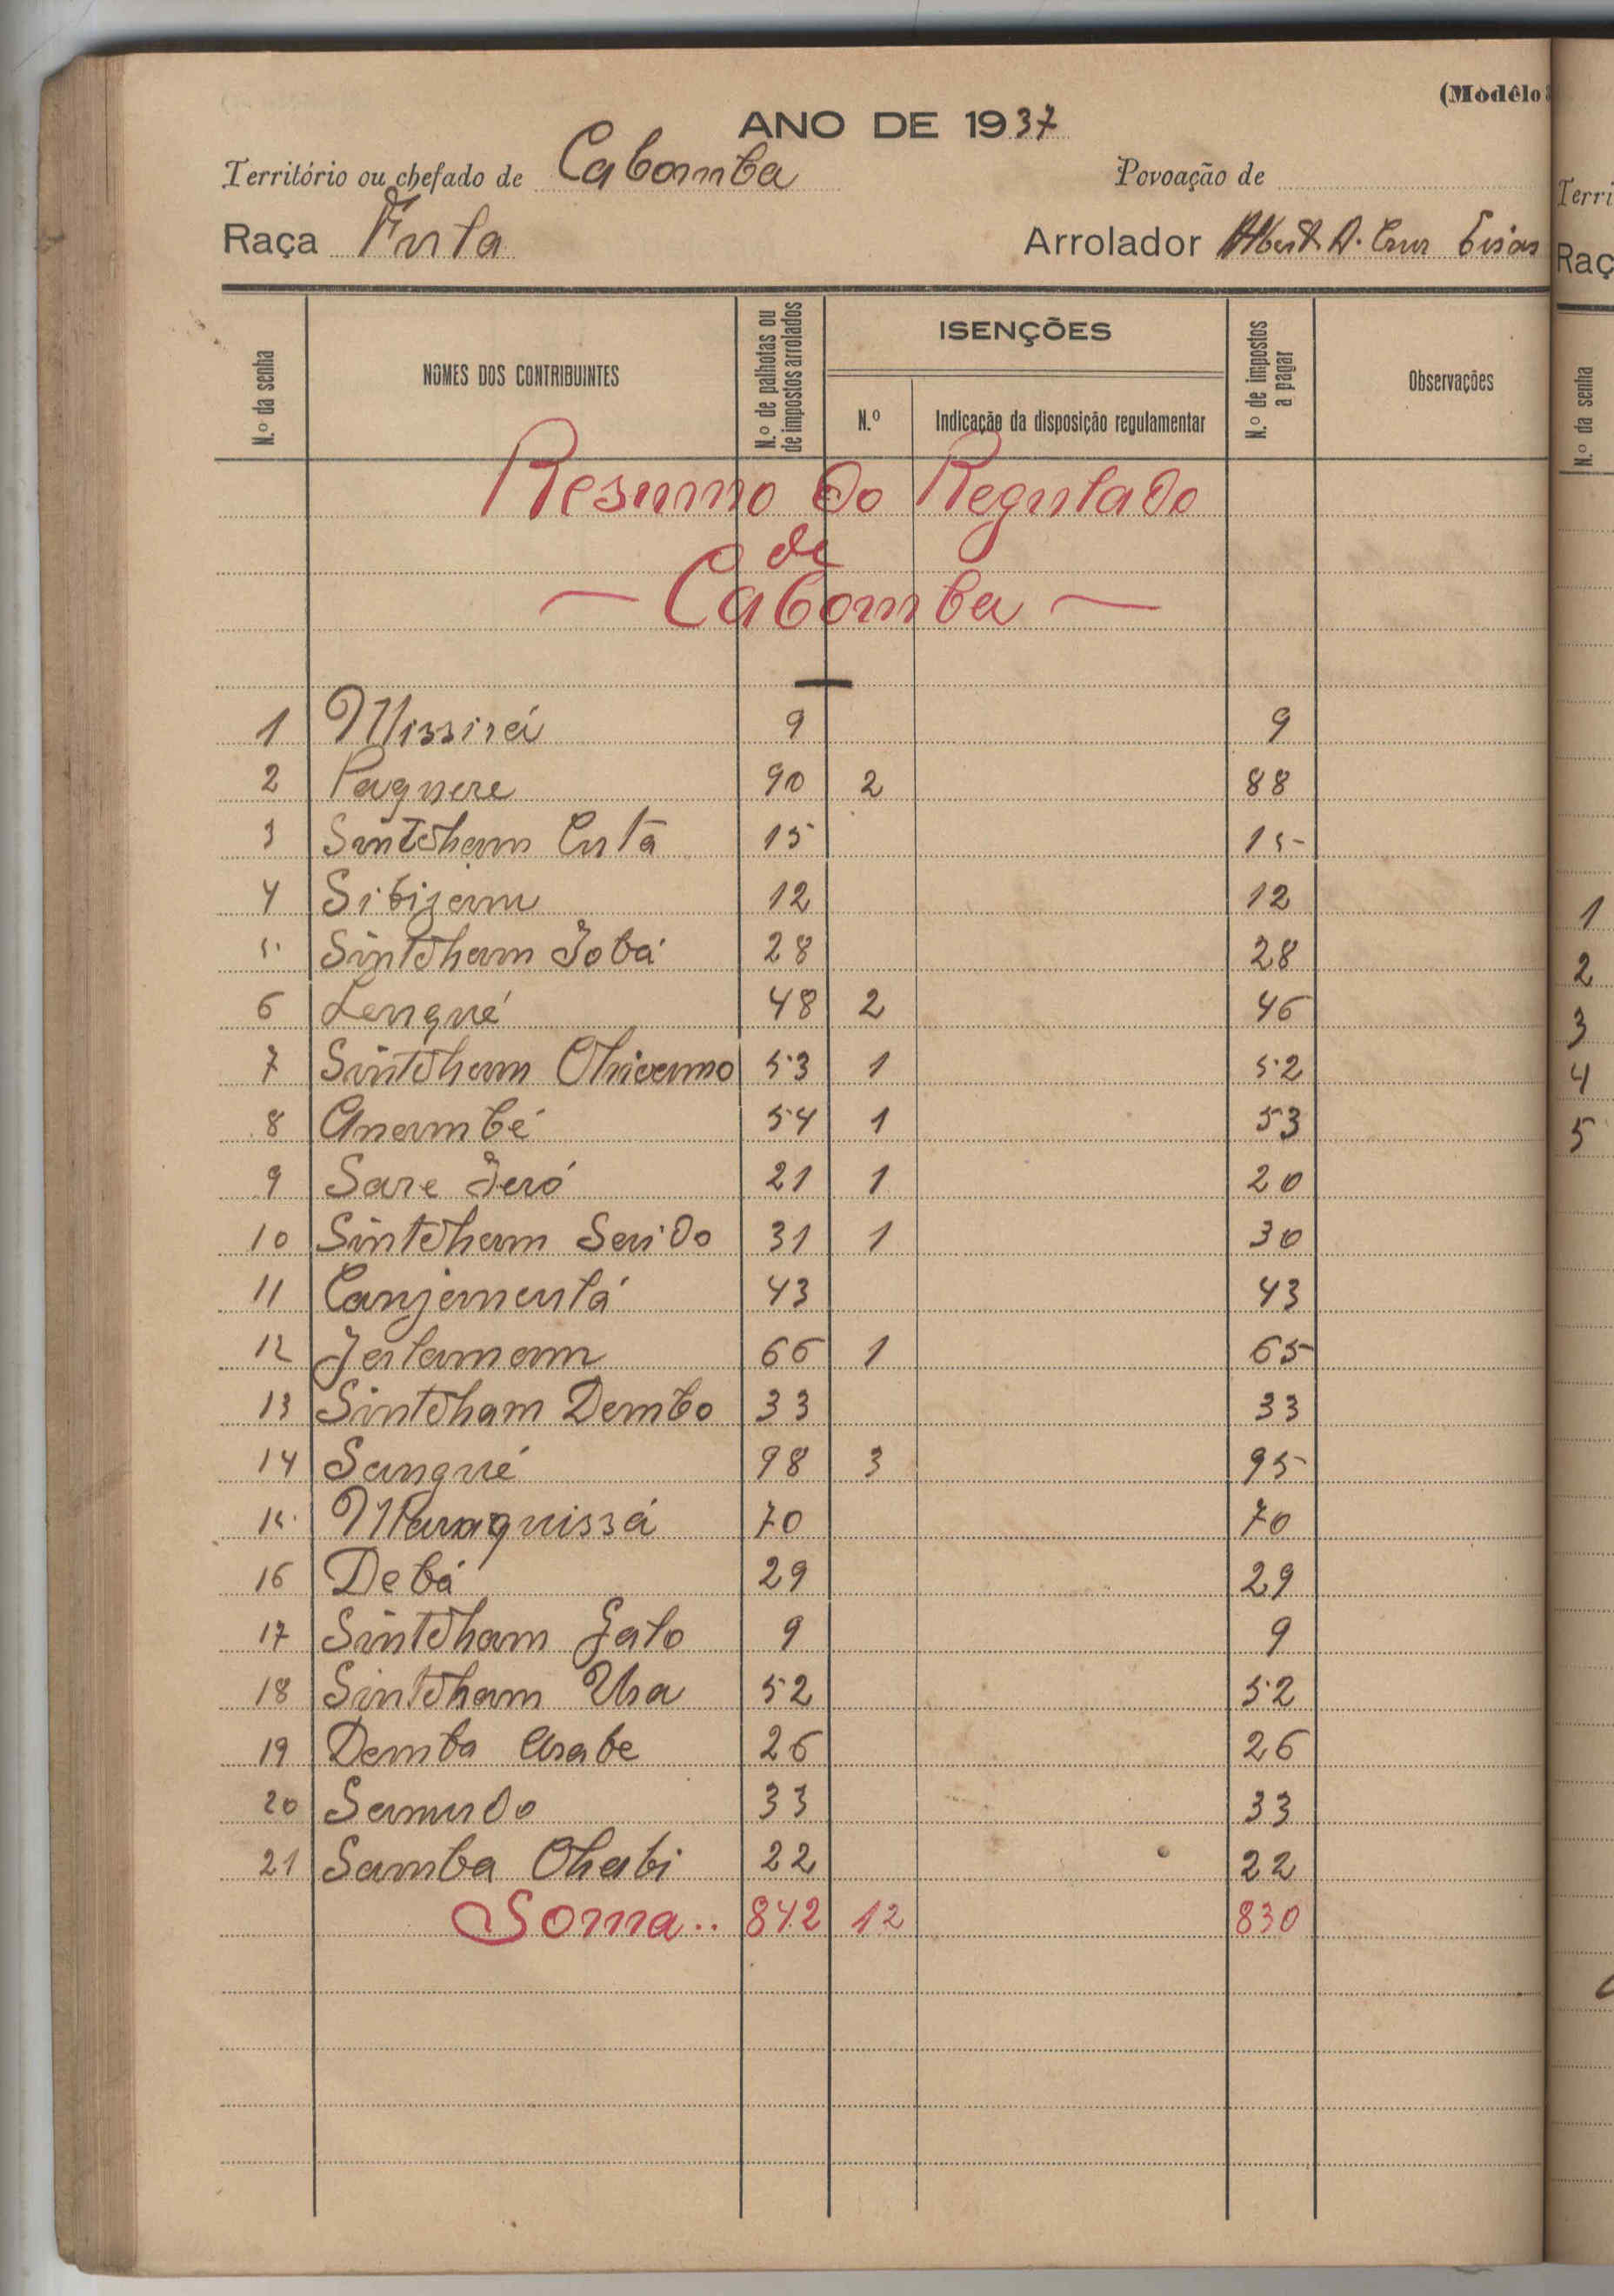 (Modêlo
ANO DE 1937
Território ou chefado de Cabomba Povoação de
Raça Fula Arrolador A. Cruz
N.º da senha
NOMES DOS CONTRIBUINTES
N.º de palhotas ou de impostos arrolados
ISENÇÕES
N.º
Indicação da disposição regulamentar
N.º de impostos a pagar
Observações
Resumo do Regulado
de
— Cabomba —
1 Missirá 9 9
2 Paquere 90 2 88
3 Sintcham Cutá 15 15
4 Sibijam 12 12
5 Sintcham Jobá 28 28
6 Lenqué 48 2 46
7 Sintcham 53 1 52
8 Anambé 54 1 53
9 Sare Jeró 21 1 20
10 Sintcham Saido 31 1 30
11 Canjamentá 43 43
12 66 1 65
13 Sintcham Dembo 33 33
14 Sanqué 98 3 95
15 70 70
16 Debá 29 29
17 Sintcham Galo 9 9
18 Sintcham 52 52
19 Demba Arabe 26 26
20 Samudo 33 33
21 Samba Chabi 22 22
Soma.. 842 12 830
Terri
Raç
N.º da senha
1
2
3
4
5